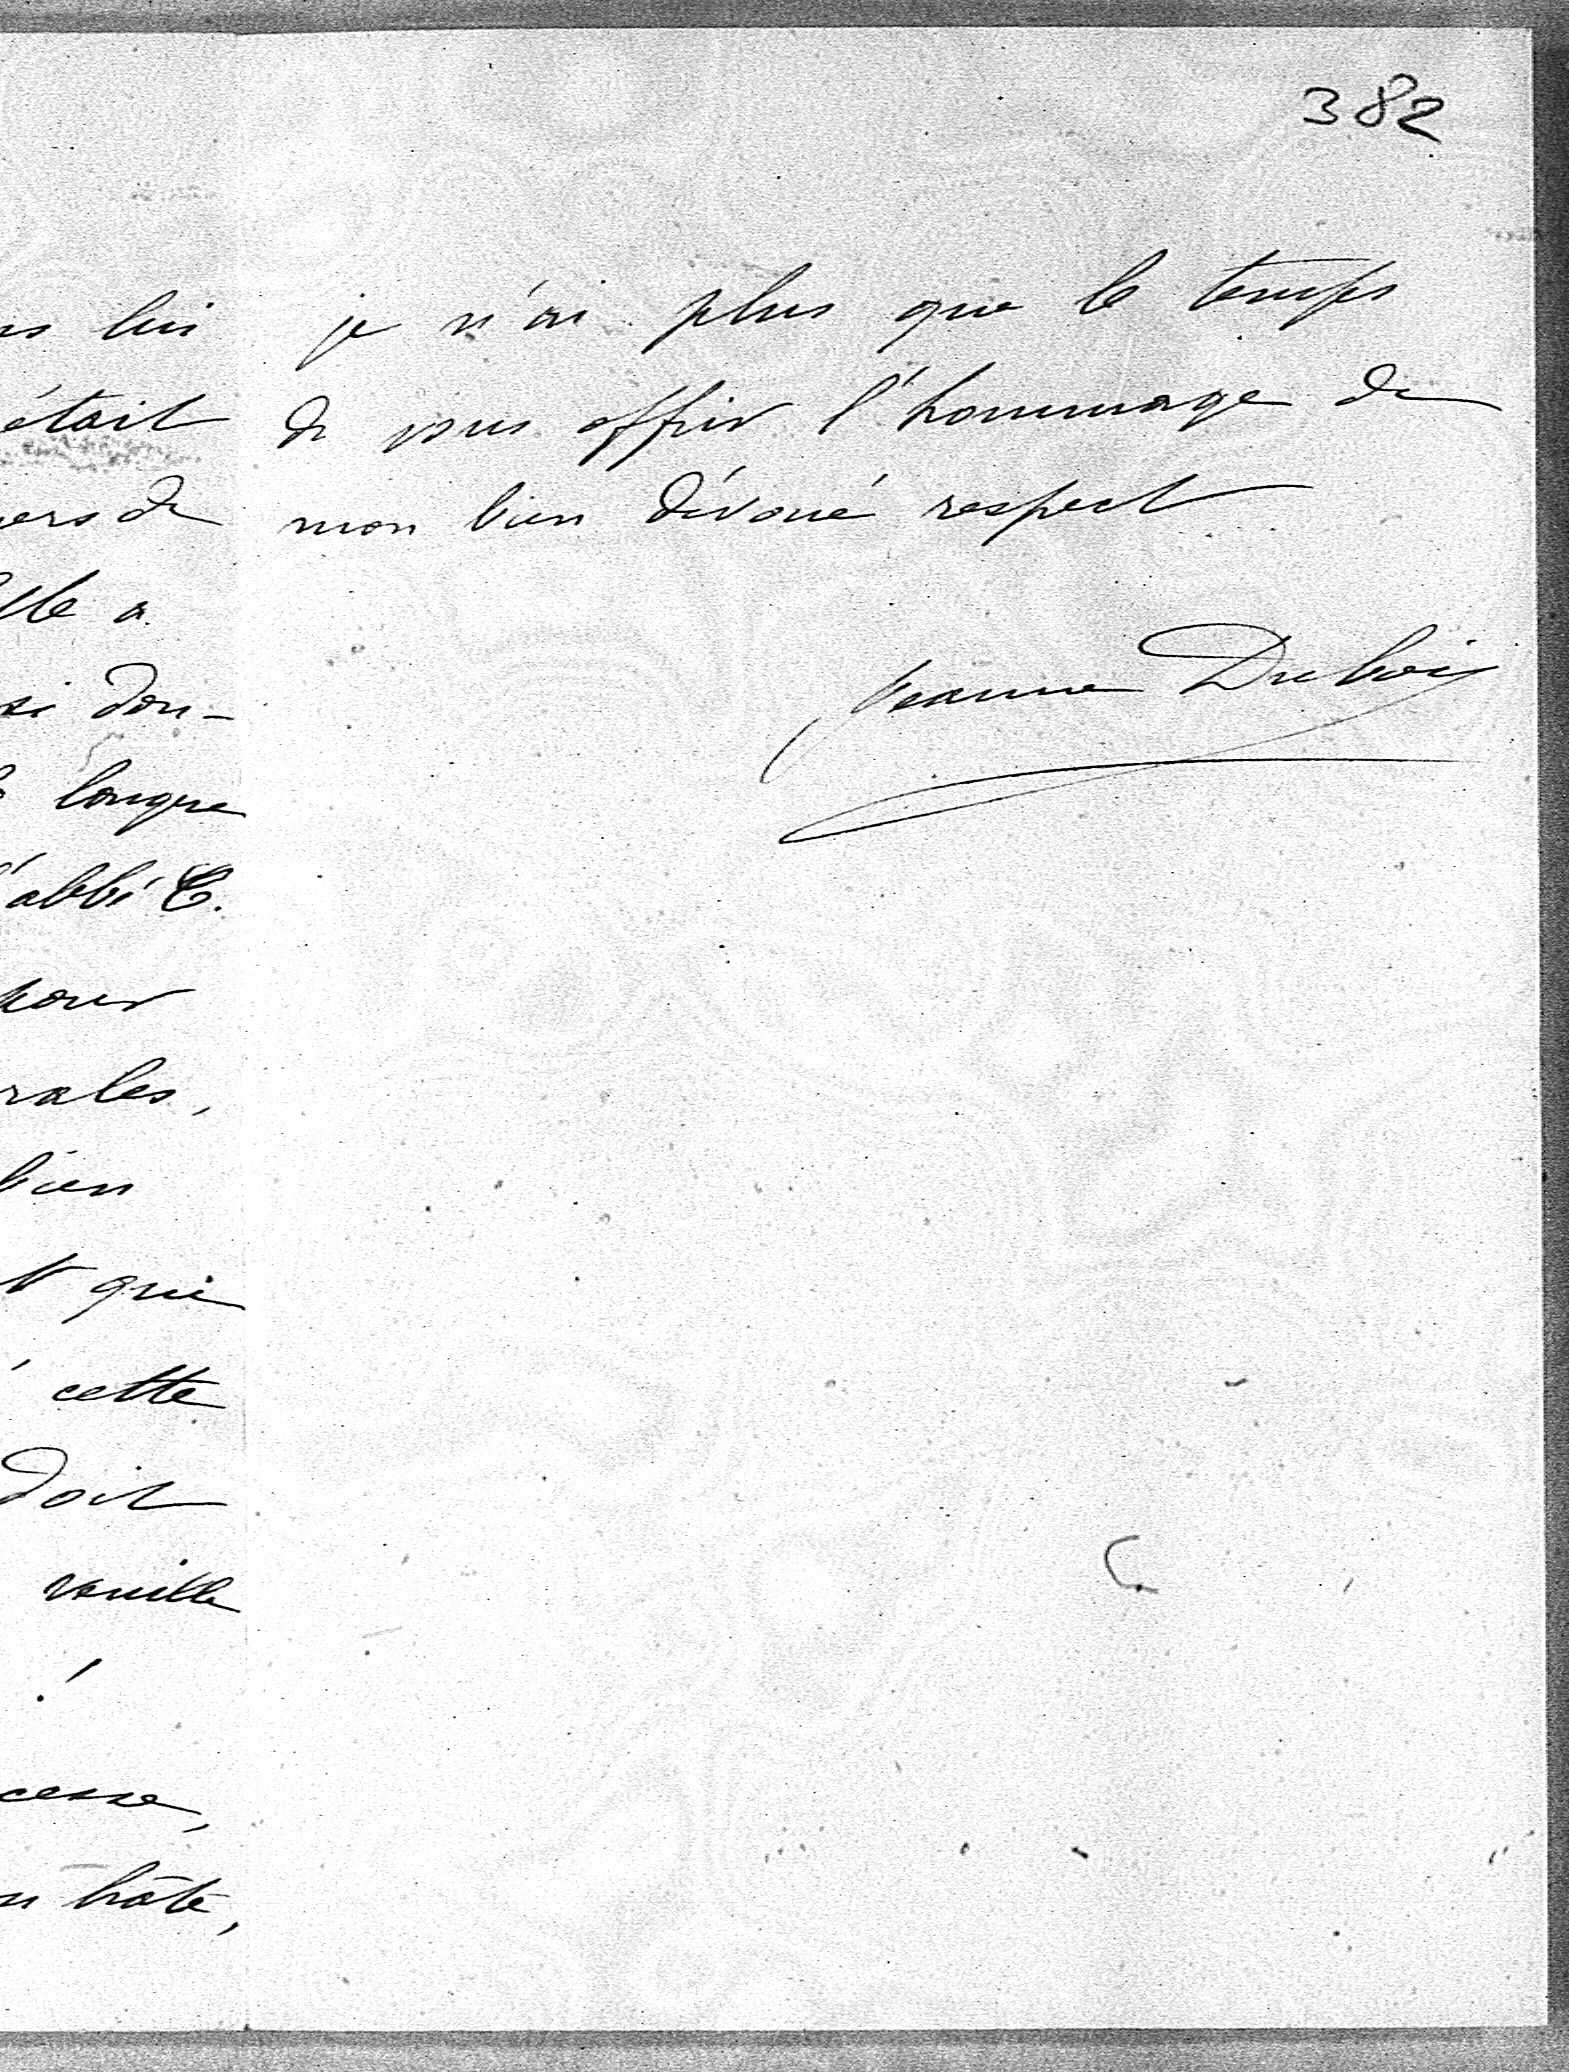 382
lui
était
de
a
si dou-
longue
l'abbé C.
pour
rales,
bien
qui
cette
doit
veuille
!
cesse,
hâte,
je n'ai plus que le temps
de vous offrir l'hommage de
mon bien dévoué respect
Jeanne Dubois